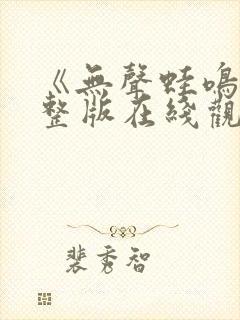 《無聲蛙鳴
整版在綫觀
裴秀智